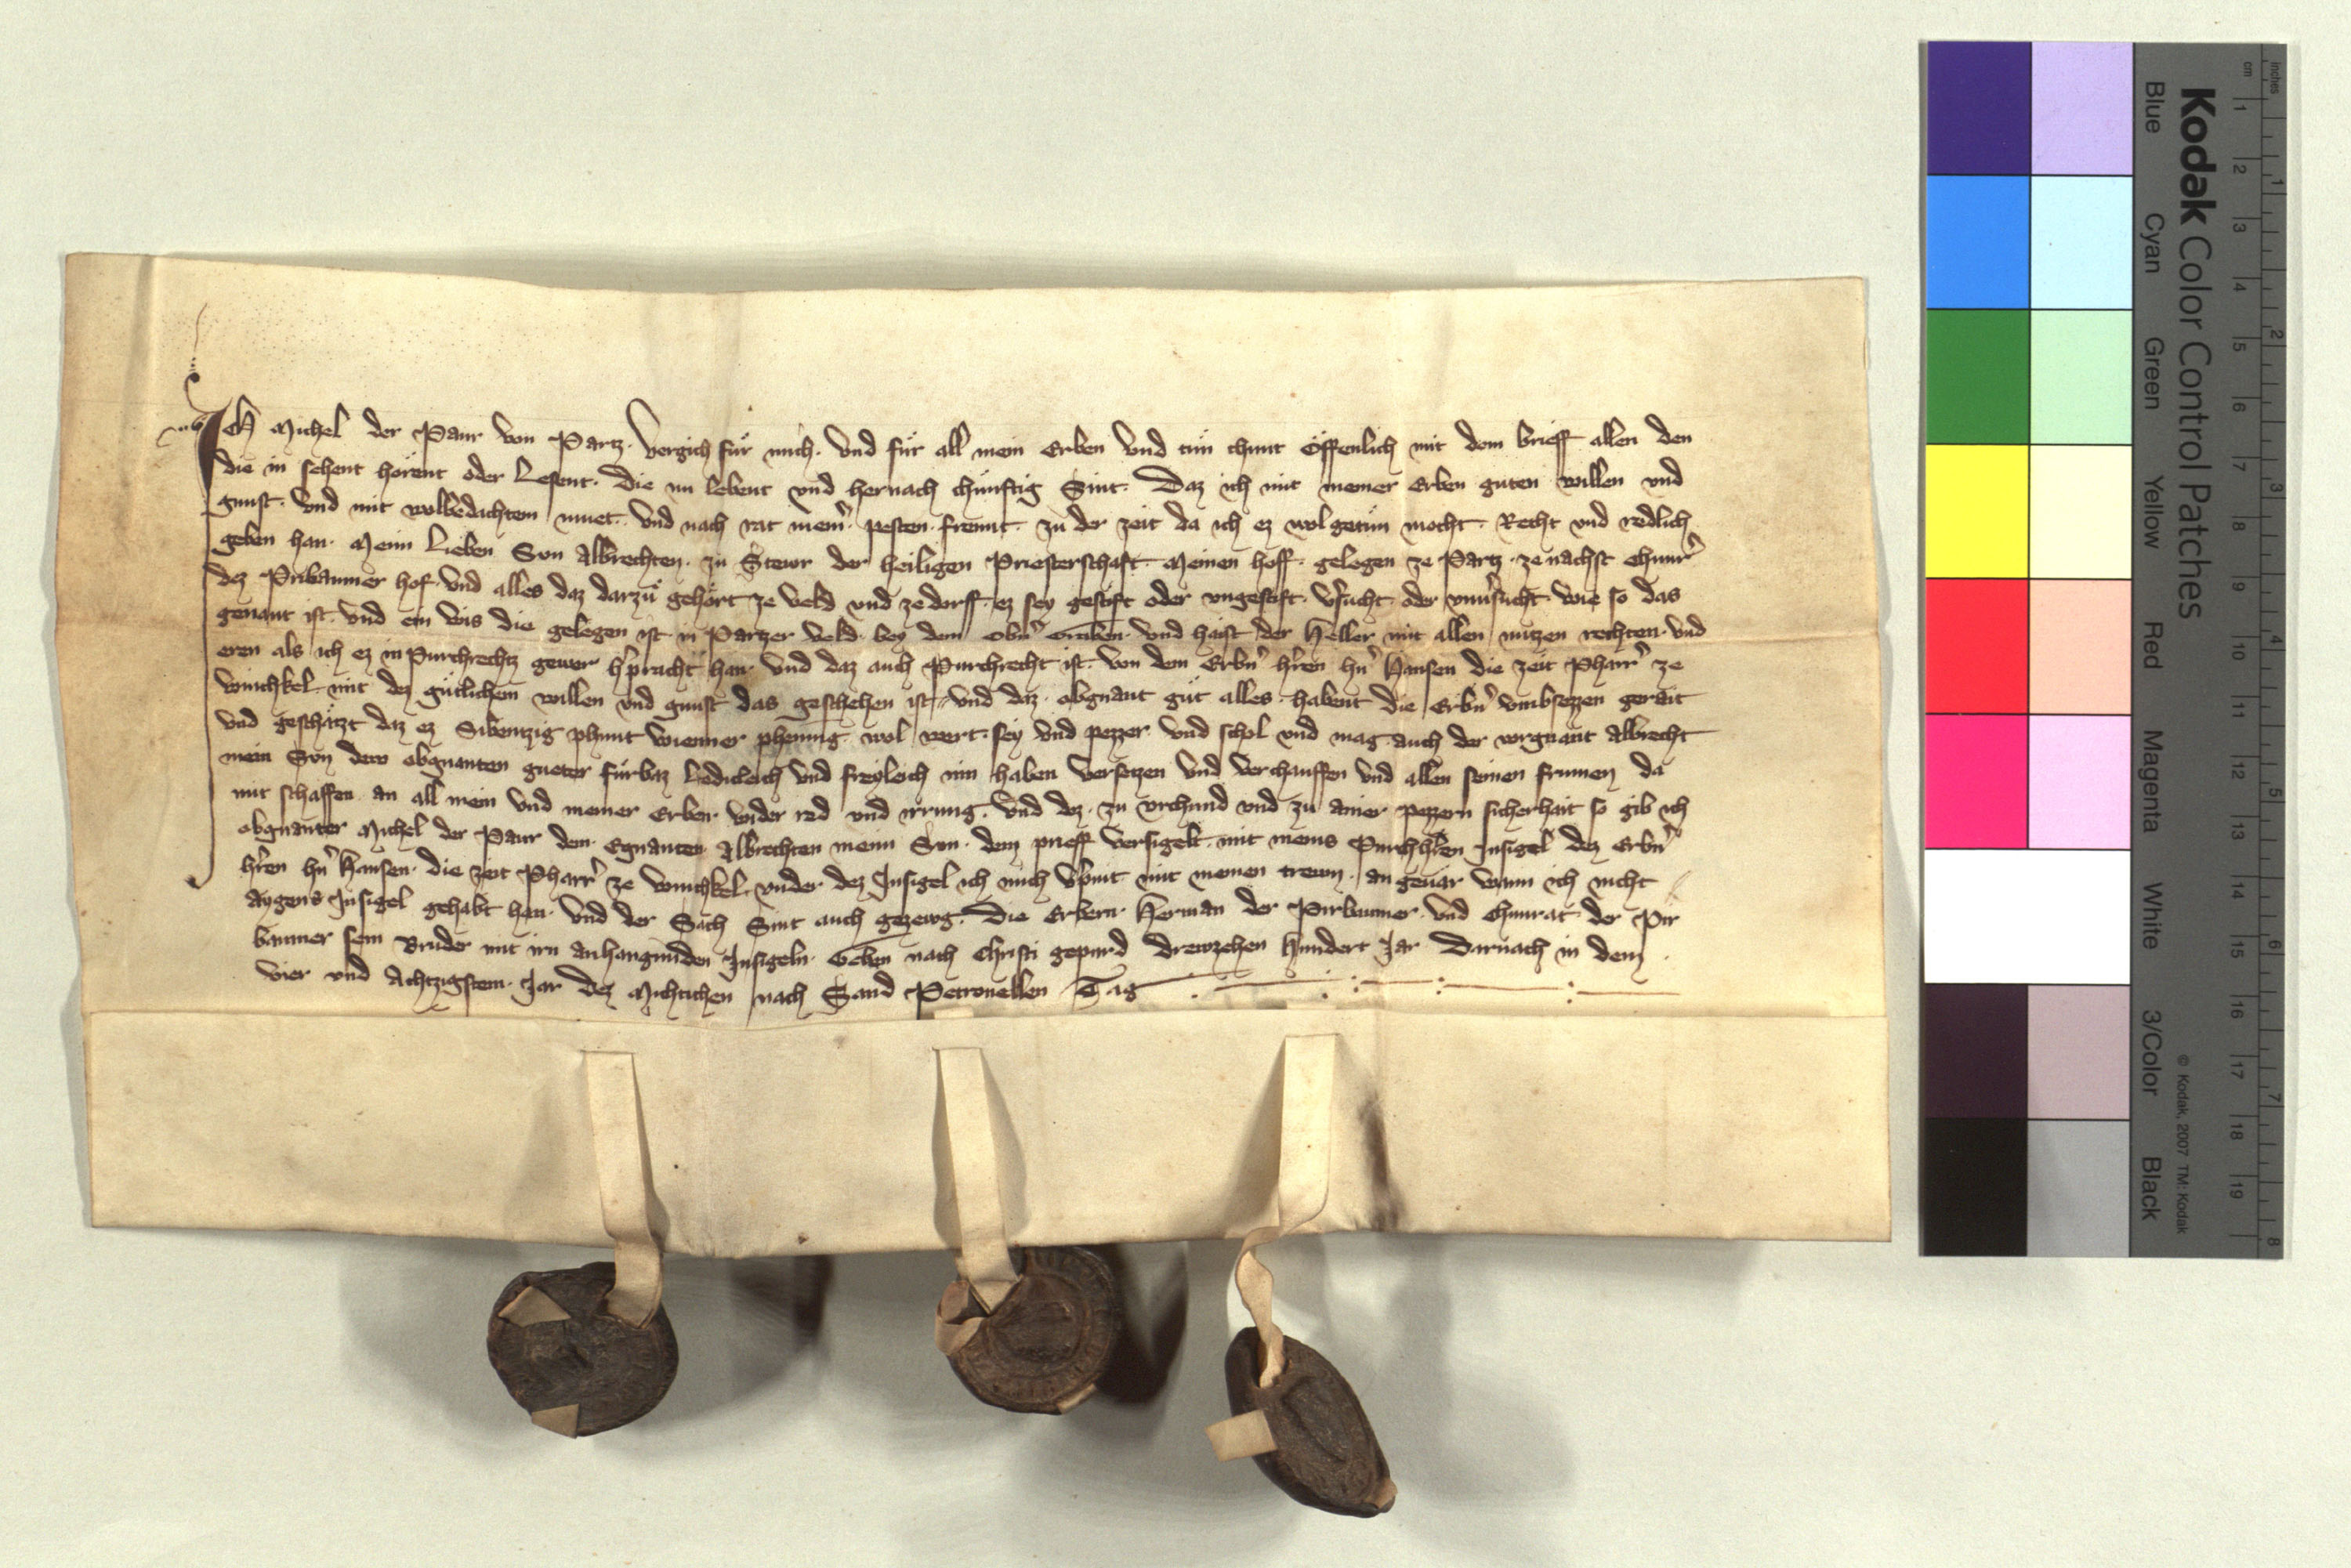 Ich Michel der Paur von Partz. Vergich für mich. Und für all mein Erben Und tün chunt Öffenlich mit dem brieff allen den
die in sehent hörent oder Lesent. Die nu lebent und hernach chünftig Sint. Daz ich mit meiner Erben guten willen und
gunst. Und mit wolbedachtem muet. Und nach rat mein̄. pesten. freunt. zu der zeit da ich ez wol getün mocht. Recht und redlich
geben han. Meim Lieben Sun Albrechten. zu Stewr der heiligen Priesterschaft. Meinen hoff. gelegen ze Partz. ze nachst Chunr̄
dez Pirbaumer hof. Und alles daz darzů gehört ze veld und ze dorff. ez sey gestift oder ungestift. v̄sucht. oder unv̄sucht. wie so das
genant ist. Und ein wis die gelegen ist in Partzer veld. bey dem obn̄ Graben. und haist der Heller mit allen nutzen rechten. Und
eren als ich ez in Purchrechtz gewer h̄pracht han. Und daz auch Purchrecht ist. von dem Erbn̄ h̄ren hn̄ Hansen die zeit Pharr̄ ze
winchkel. mit dez gütlichem willen und gunst das geschehen ist. Und daz. obgnant güt alles. habent die Erbn̄ umbsezzen gerait
und geschätzt daz ez Sibentzig phunt wienner phennig. wol wert. sey und pezzer. Und schol und mag. auch der vorgnant Albrecht
mein Sun dew obgnanten gueter fürbaz Ledichleich und freyleich inn haben versetzen und verchauffen und allen seinen frumen da
mit schaffen. an all mein und meiner Erben. wider red und irrung. Und dez. zu urchund und zu ainer pezzern sicherhait so gib ich
obgnanter Michel der Paur dem. Egnanten Albrechten meim Sun. dem prieff versigelt. mit meins Purchh̄ren Insigel dez Erbn̄
h̄ren hn̄ Hansen. die zeit Pharr̄ ze winchkel. under dez Insigel ich mich v̄pint mit meinen trewn. an gevär wann ich nicht
Aygens Insigel gehabt han. Und der Sach Sint auch gezewg. Die Erbern. Herman der Pirbaumer. und Chunrat. der Pir
baumer sein Bruder mit irn anhangunden Insigeln. Geben nach Christi gepurd drewzehen hundert Jar Darnach in dem
vier und Achtzigstem. Jar dez Michtichen nach Sand Petronellen Tag
Kodak Color Control Patches
Blue Cyan Green Yellow Red Magenta White 3/Color Black
© Kodak, 2007 TM: Kodak
inches 1 2 3 4 5 6 7 8
cm 1 2 3 4 5 6 7 8 9 10 11 12 13 14 15 16 17 18 19